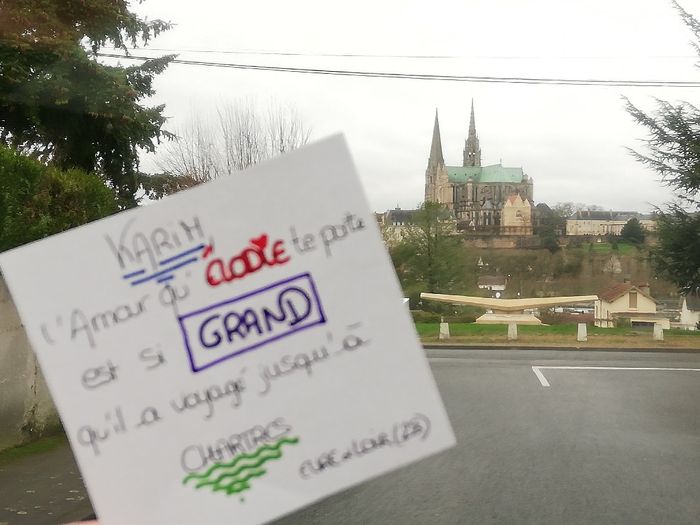 KARIM
l'Amour qu'ELODIE te porte
est si GRAND
qu'il a voyagé jusqu'à
CHARTRES
EURE et LOIR (28)